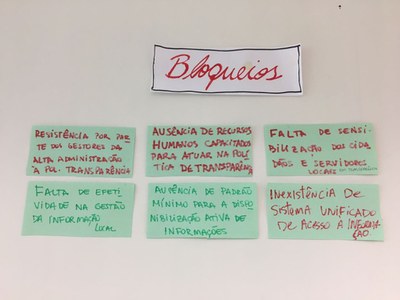 Bloqueios
RESISTÊNCIA POR PAR
TE DOS GESTORES DA
ALTA ADMINISTRAÇÃO
À POL. TRANSPARÊNCIA
AUSÊNCIA DE RECURSOS
HUMANOS CAPACITADOS
PARA ATUAR NA POLÍ
TICA DE TRANSPARÊNCIA
FALTA DE SENSI
BILIZAÇÃO DOS CIDA
DÃOS E SERVIDORES
LOCAIS
FALTA DE EFETI
VIDADE NA GESTÃO
DA INFORMAÇÃO
LOCAL
AUSÊNCIA DE PADRÃO
MÍNIMO PARA A DISPO
NIBILIZAÇÃO ATIVA DE
INFORMAÇÕES
INEXISTÊNCIA DE
SISTEMA UNIFICADO
DE ACESSO A INFORMA
ÇÃO